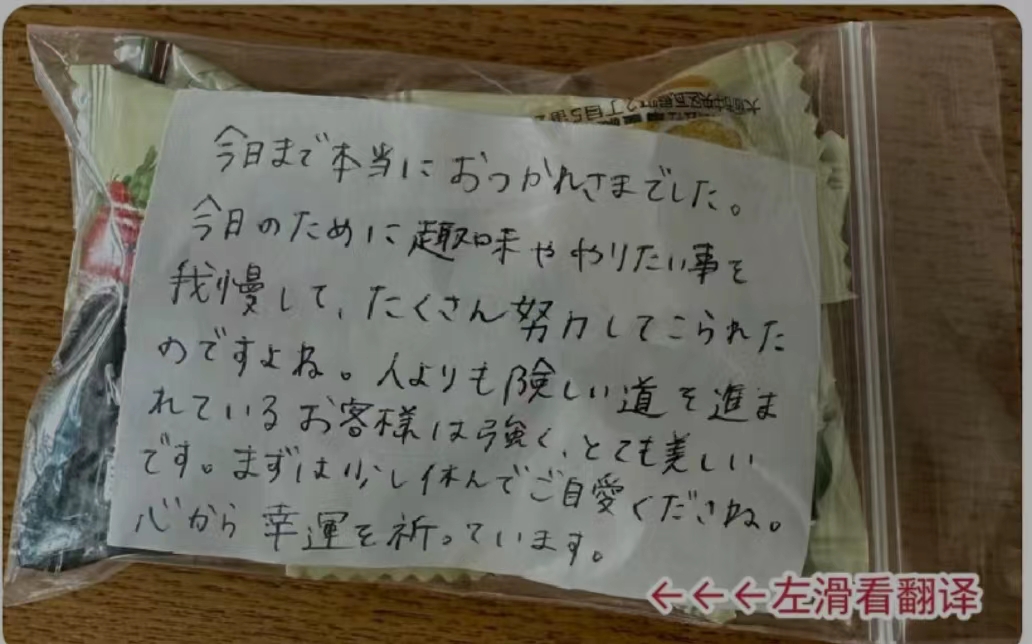 今日まで本当におつかれさまでした。
今日のために趣味ややりたい事を
我慢して、たくさん努力してこられた
のですよね。人よりも険しい道を進ま
れているお客様は強く、とても美しい
です。まずは少し休んでご自愛くださね。
心から幸運を祈っています。
2丁目5番
←←←左滑看翻译